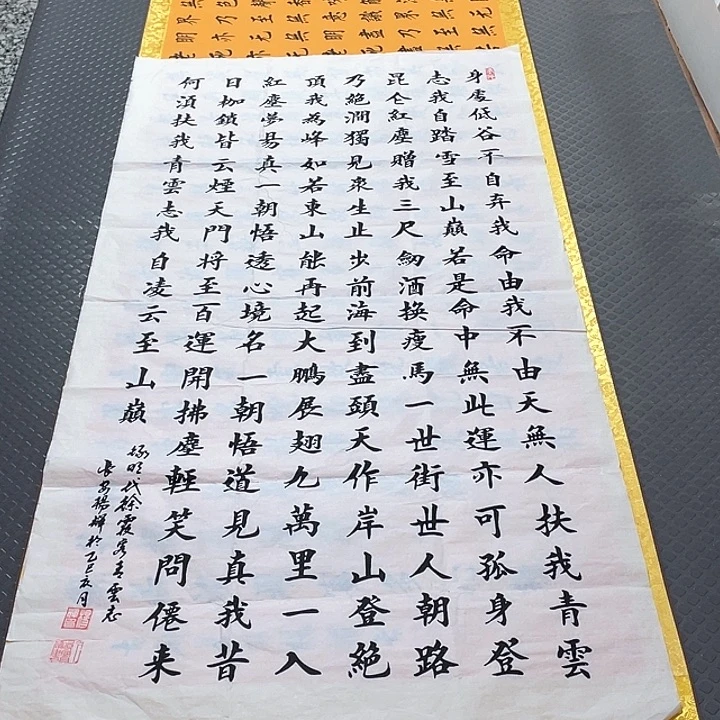 身處低谷不自弃我命由我不由天無人扶我青雲
志我自踏雪至山巔若是命中無此運亦可孤身登
昆仑紅塵贈我三尺劒酒換瘦馬一世街世人朝路
乃絕澗獨見衆生止步前海到盡頭天作岸山登絕
頂我為峰如若東山能再起大鵬展翅九萬里一入
紅塵夢易真一朝悟透心境名一朝悟道見真我昔
日枷鎖皆云煙天門將至百運開拂塵輕笑問僊来
何須扶我青雲志我自凌云至山巔
錄明代徐霞客青雲志
長安楊輝於乙巳夏月